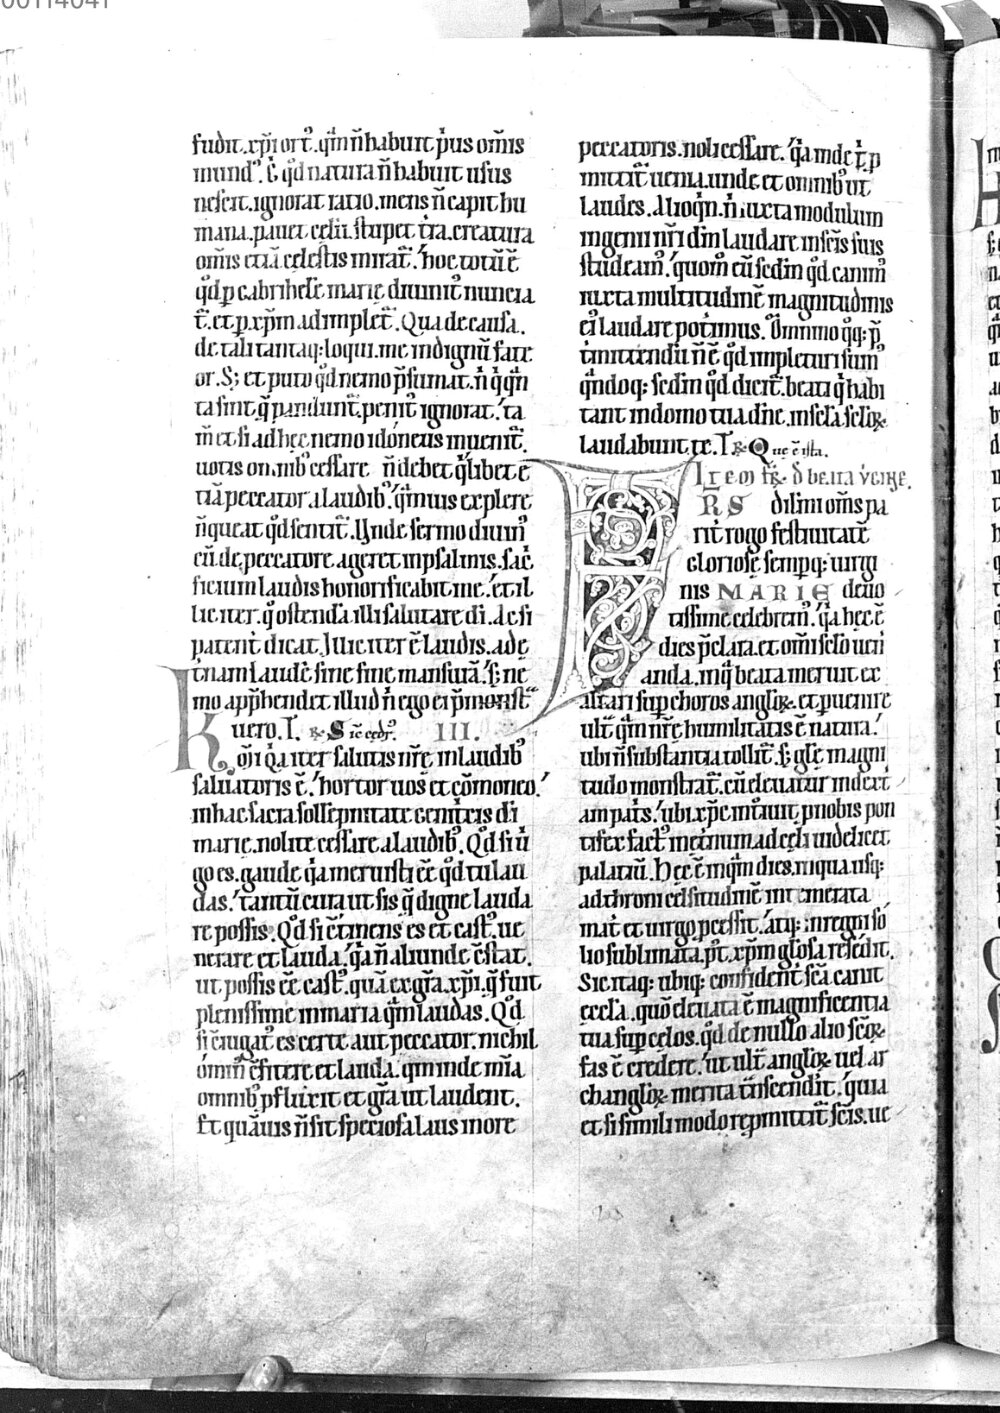 00114041
fudit. xp̄i ort᷒. qm̄ n̄ habuit p̄us om̄is
mund᷒. ē. qd̄ natura n̄ habuit usus
nescit. ignorat ratio. mens n̄ capit hu
mana. pauet celū. stupet t̄ra. creatura
om̄is etiā celestis mirat᷑. hoc totū ē
qd̄ p gabrihelē marię diuinit᷒ nuncia
t᷑. et p xp̄m adimplet᷑. Qua de causa.
de tali tantaq; loqui. me indignū fate
or. S; et puto qd̄ nemo p̄sumat. n̄ q̇ qn̄
ta sint. q̄ pandunt᷑. penit᷒ ignorat. ta
m̄ etsi ad hęc nemo idoneus inuenit᷑.
uotis omnib᷒ cessare n̄ debet q̇libet e
tiā peccator a laudib᷒. qm̄uis explere
n̄queat qd̄ sentit. Unde sermo diuin᷒
cū de peccatore ageret in psalmis. sac̄
ficium laudis honorificabit me. et il
lic iter. q̊ ostendā illi salutare dī. ac si
patent̄ dicat. Illic iter ē laudis. ad ę
t̄nam laudē sine fine mansurā. s; ne
mo app̄hendet illud n̄ ego ei p̄monst̄
uero. T. R. Sic cedr᷒. III.
Kom̄i q̇a iter salutis nr̄ę in laudib᷒
saluatoris ē. hortor uos et cōmoneo.
in hac sacra sollēpnitate genitricis dī
marię. nolite cessare a laudib᷒. Qd̄ si ū
go es. gaude q̇a meruisti eē qd̄ tu lau
das. tantū cura ut sis q̇ digne lauda
re possis. Qd̄ si c̄tinens es et cast᷒. ue
nerare et lauda. q̇a n̄ aliunde c̄stat.
ut possis eē cast᷒. quā ex gr̄a xp̄i. q̄ fuit
plenissime in maria qm̄ laudas. Qd̄
si c̄iugat᷒ es certe aut peccator. nichil
omin᷒ c̄fitere et lauda. qm̄ inde mīa
omnib᷒ pfluxit et gr̄a ut laudent.
Et quāuis n̄ sit speciosa laus in ore
peccatoris. noli cessare. q̇a inde t᷑ p
mittit᷑ uenia. unde et omnib᷒ ut
laudes. Alioq̇n. n̄ iuxta modulum
ingenii nr̄i dīm laudare in sc̄is suis
studeam᷒. quom̊ cū sedin qd̄ canim᷒
iuxta multitudinē magnitudinis
ei᷒ laudare potimus. Omnino q̊q; p̄
t̄mittendū n̄ ē. qd̄ impleturi sum᷒
qn̄doq; sedin qd̄ dicit᷑. beati q̇ habi
tant in domo tua dn̄e. in sc̄la sc̄lox
laudabunt te. T. R. Que ē ista.
Item fr̄. d̄ beata ūgine.
FRS dil̄mi om̄s pa
rit̄ rogo festiuitatē
gloriosę semp̄q; uirgi
nis MARIĘ deuo
tissime celebrem᷒. q̇a hęc ē
dies p̄clara. et om̄i sc̄lo uen̄
anda. in q̇ beata meruit ex
altari sup̄ choros anglox. et puenire
ult̄ qm̄ nr̄ę humilitatis ē natura.
ubi n̄ substantia tollit᷑. s; gl̄ę magni
tudo monstrat᷑. cū eleuatur in dext̄
am pat̄s. ubi xp̄c int̄uit p nobis pon
tifex fact᷒ inęt̄num ad cęli uidelicet
palatiū. Hęc ē inqm̄ dies. in qua usq;
ad throni celsitudinē intemerata
mat̄ et uirgo pcessit. atq; in regni so
lio sublimata. p᷒t xp̄m gl̄osa resedit.
Sic itaq; ubiq; confident̄ sc̄a canit
eccl̄a. quō eleuata ē magnificentia
tua sup̄ cęlos. qd̄ de nullo alio sc̄ox
fas ē credere. ut ult̄ anglox uel ar
changlox merita t̄nscendit. quia
etsi simili modo rep̄mittit᷑ sc̄is. ue